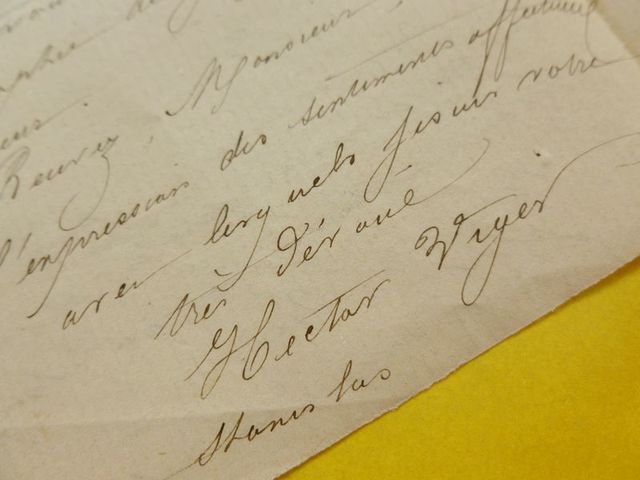 Recevez, Monsieur,
l'expression des sentiments affectueux
avec lesquels je suis votre
très dévoué
Hector Viger
Stanislas